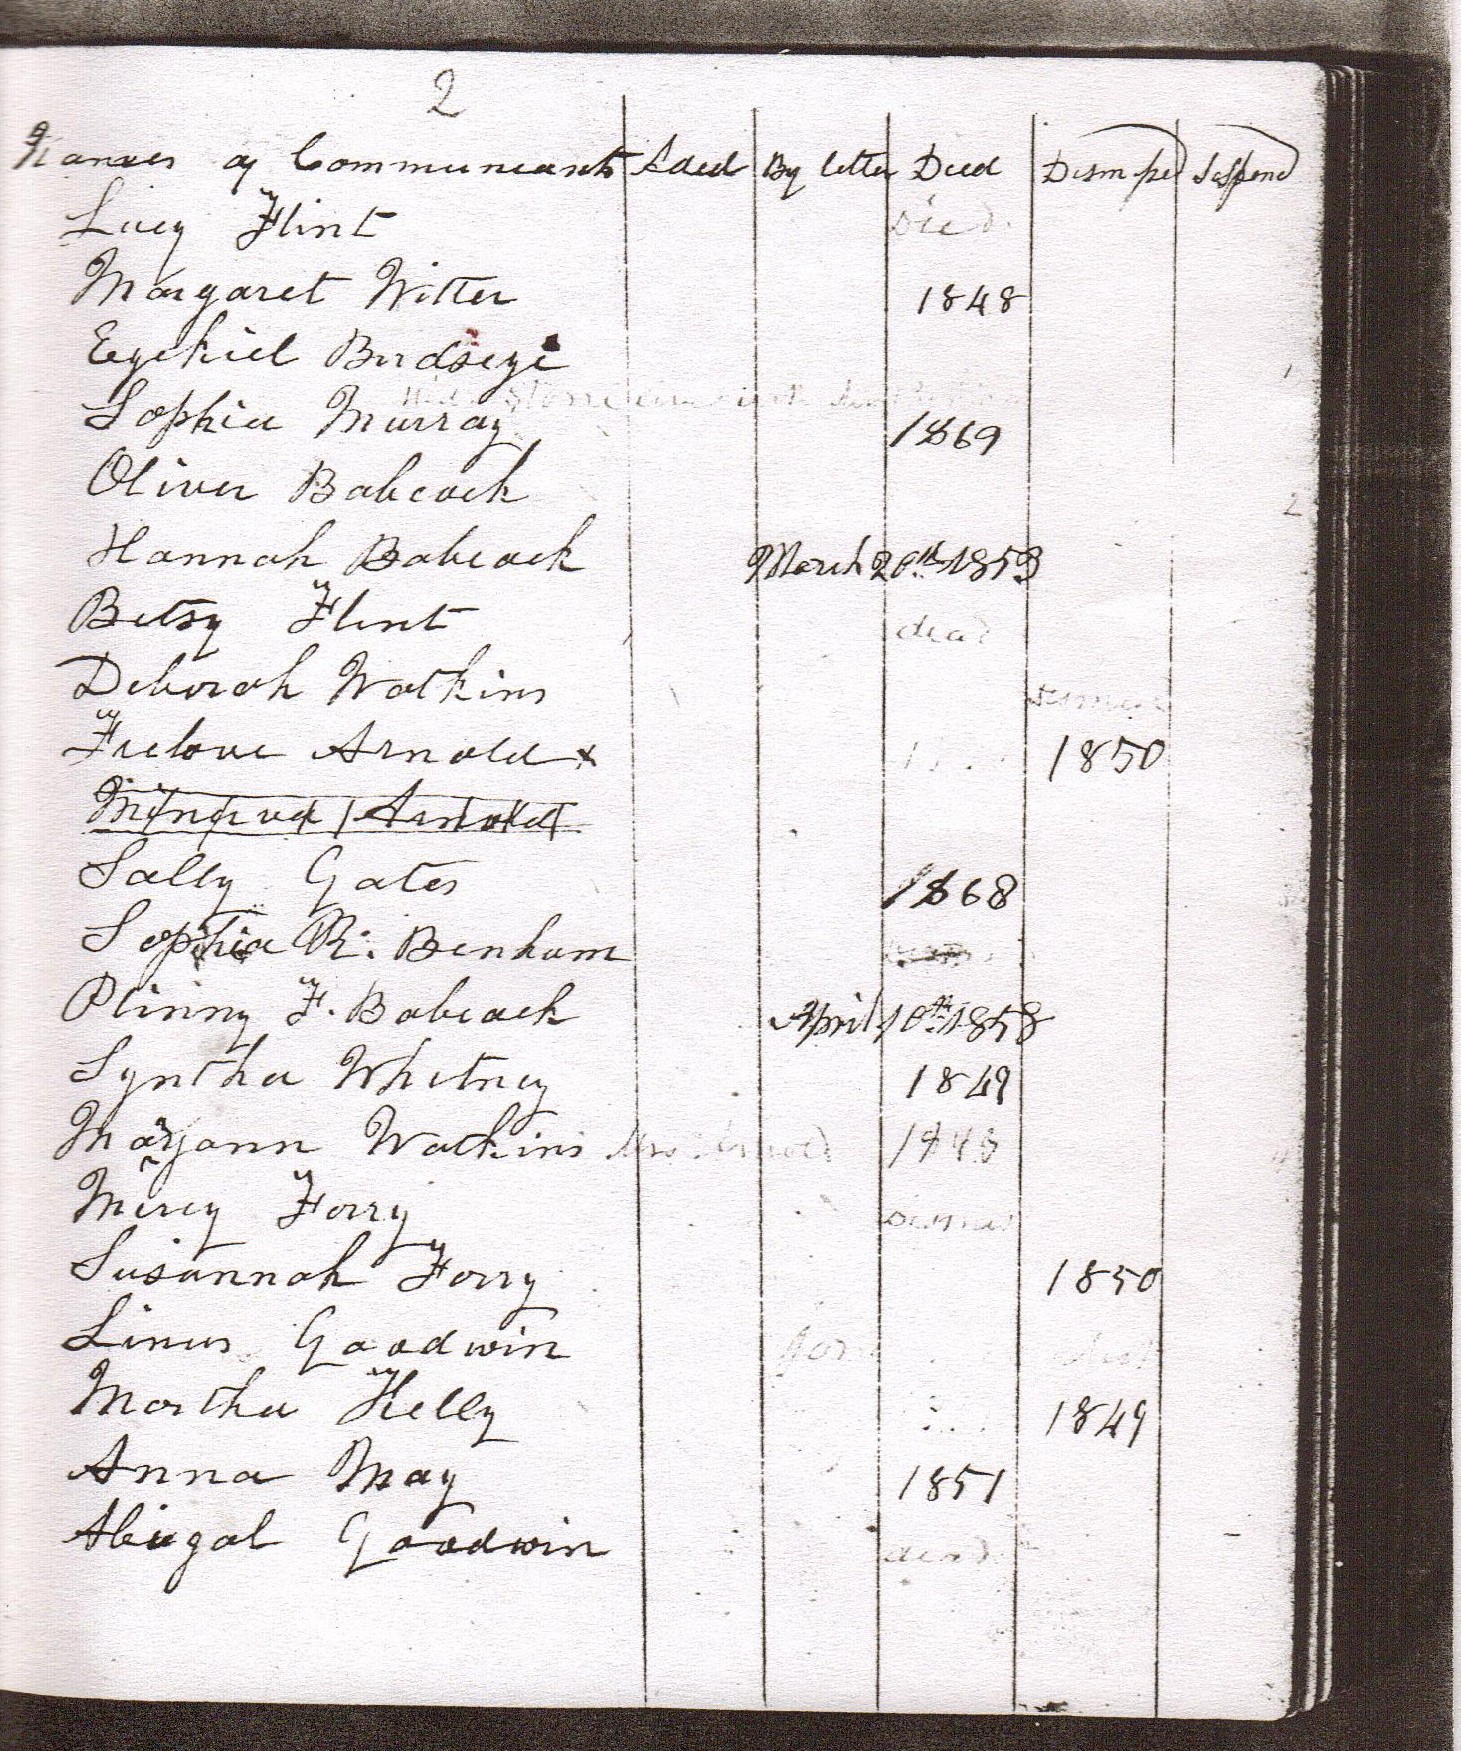 2
Names of Communicants Aded By letter Died Dismsed Suspend
Lucy Flint Died
Margaret Witter 1848
Ezekiel Birdseye 1
Sophia Murray 1869
Oliver Babcock 2
Hannah Babcock March 20th 1853
Betsy Flint dead
Deborah Watkins
Freelove Arnold x 1850
Minerva Arnold
Sally Gates 1868
Sophia R. Benham
Plinny F. Babcock April 10th 1858
Syntha Whitney 1849
Maryann Watkins Mrs Arnold 1848
Mercy Forry
Susannah Forry 1850
Linus Goodwin
Martha Kelly 1849
Anna May 1851
Abigal Goodwin dead